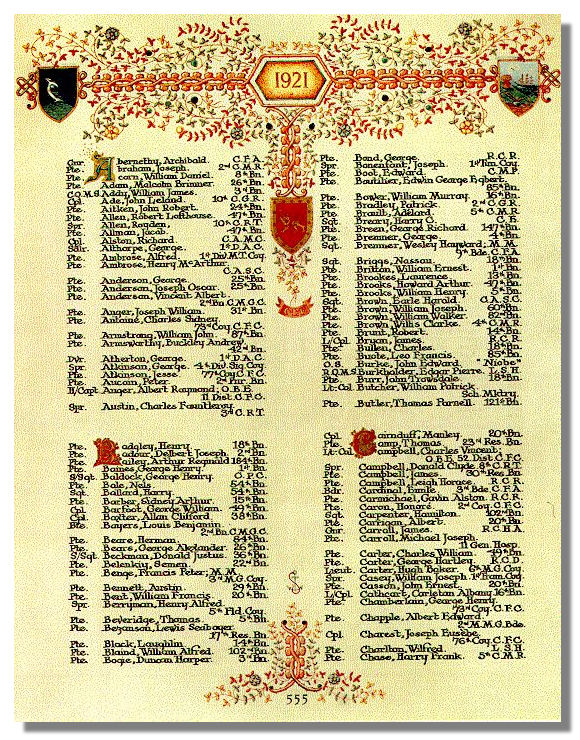 1921
Gnr. Abernethy, Archibald. C.F.A.
Pte. Abraham, Joseph. 2nd C.M.R.
Pte. Acorn, William Daniel. 8th Bn.
Pte. Adam, Malcolm Brimner. 26th Bn.
C.Q.M.S. Addy, William James. 3rd Bn.
Cpl. Ade, John Leland. 10th C.G.R.
Pte. Aitken, John Robert. 24th Bn.
Pte. Allen, Robert Lofthouse. 47th Bn.
Spr. Allen, Royden. 10th C.R.T.
Pte. Allman, Jacob. 47th Bn.
Cpl. Alston, Richard. C.A.M.C.
Althorpe, George. 1st D.A.C.
Pte. Ambrose, Alfred. 1st Div. M.T. Coy.
Pte. Ambrose, Henry McArthur.
C.A.S.C.
Pte. Anderson, George. 25th Bn.
Pte. Anderson, Joseph Oscar. 25th Bn.
Pte. Anderson, Vincent Albert.
2nd Bn. C.M.G.C.
Pte. Anger, Joseph William. 31st Bn.
Pte. Antaine, Charles Sidney.
73rd Coy. C.F.C.
Pte. Armstrong, William John. 87th Bn.
Pte. Armsworthy, Buckley Andrew.
42nd Bn.
Dvr. Atherton, George. 1st D.A.C.
Spr. Atkinson, George. 4th Div. Sig. Coy.
Pte. Atkinson, Jesse. 77th Coy. C.F.C.
Pte. Aucoin, Peter. 2nd Pnr. Bn.
H/Capt. Auger, Albert Raymond; O.B.E.
11 Dist. C.F.C.
Spr. Austin, Charles Fauntleroy.
3rd C.R.T.
Pte. Badgley, Henry. 18th Bn.
Pte. Badour, Delbert Joseph. 2nd Bn.
Pte. Bailey, Arthur Reginald. 184th Bn.
Pte. Baines, George Henry. 1st Bn.
S/Sgt. Baldock, George Henry. C.P.C.
Pte. Bale, Nels. 54th Bn.
Sgt. Ballard, Harry. 54th Bn.
Pte. Barber, Sidney Arthur. 15th Bn.
Cpl. Barfoot, George William. 49th Bn.
Cpl. Baxter, Allan Clifford. 38th Bn.
Bayers, Louis Benjamin.
2nd Bn. C.M.G.C.
Pte. Beare, Herman. 84th Bn.
Pte. Bears, George Alexander. 26th Bn.
S/Sgt. Beckman, Donald Justus. 36th Bn.
Pte. Belenkiy, Semen. 22nd Bn.
Pte. Benge, Francis Peter; M.M.
3rd M.G. Coy.
Pte. Bennett, Austin. 29th Bn.
Pte. Bent, William Francis. 20th Bn.
Spr. Berryman, Henry Alfred.
5th Fld. Coy.
Pte. Beveridge, Thomas. 5th Bn.
Pte. Beyanson, Lewis Seaboyer.
17th Res. Bn.
Pte. Black, Laughlin. 14th Bn.
Pte. Blaind, William Alfred. 102nd Bn.
Pte. Bogie, Duncan Harper. 3rd Bn.
Pte. Bond, George. R.C.R.
Spr. Bonenfont, Joseph. 1st Tun. Coy.
Pte. Boot, Edward. C.M.P.
Pte. Boutilier, Edwin George Egbert.
85th Bn.
Pte. Bower, William Murray. 16th Bn.
Pte. Bradley, Patrick. 2nd C.G.R.
Pte. Brault, Adélard. 5th C.M.R.
Sgt. Breary, Harry C. C.E.
Pte. Breen, George Richard. 147th Bn.
Pte. Bremner, George. 4th Bn.
Sgt. Bremner, Wesley Hayward; M.M.
9th Bde. C.F.A.
Sgt. Briggs, Nassau. 18th Bn.
Pte. Britton, William Ernest. 1st Bn.
Pte. Brookes, Lawrence. 13th Bn.
Pte. Brooks, Howard Arthur. 47th Bn.
Pte. Brooks, William Henry. 5th Bn.
Sgt. Brown, Earle Harold. C.A.S.C.
Pte. Brown, William Joseph. 60th Bn.
Pte. Brown, William Walker. 52nd Bn.
Pte. Brown, Willis Clarke. 4th C.M.R.
Pte. Brunt, Robert. 44th Bn.
L/Cpl. Bryan, James. R.C.R.
Pte. Bullen, Charles. 18th Bn.
Pte. Buote, Leo Francis. 85th Bn.
O.S. Burke, John Edward. "Niobe"
R.Q.M.S. Burkholder, Edgar Pierre. L.S.H.
Pte. Burr, John Trowsdale. 18th Bn.
Lt-Col. Butcher, William Patrick.
Sch. Mktry.
Pte. Butler, Thomas Parnell. 121st Bn.
Cpl. Cairnduff, Manley. 20th Bn.
Pte. Camp, Thomas. 23rd Res. Bn.
Lt-Col. Campbell, Charles Vincent;
O.B.E. 52 Dist. C.F.C.
Spr. Campbell, Donald Clyde. 8th C.R.T.
Pte. Campbell, James. 30th Res. Bn.
Pte. Campbell, Leigh Horace. R.C.R.
Bdr. Cardinal, Emile. 3rd Bde. C.F.A.
Pte. Carmichael, Gavin Alston. R.C.R.
Pte. Caron, Honoré. 2nd Coy. C.F.C.
Sgt. Carpenter, Hamilton. 102nd Bn.
Pte. Carrigan, Albert. 20th Bn.
Gnr. Carroll, James. R.C.H.A.
Pte. Carroll, Michael Joseph.
11 Gen. Hosp.
Pte. Carter, Charles William. 49th Bn.
Pte. Carter, George Hartley. R.C.D.
Lieut. Carter, Hugh Baker. 6th M.G. Coy.
Spr. Casey, William Joseph. 1st Tram. Coy.
Pte. Casson, John Ernest. 20th Bn.
L/Cpl. Cathcart, Carleton Albany. 16th Bn.
Pte. Chamberlain, George Henry.
73rd Coy. C.F.C.
Pte. Chapple, Albert Edward.
2nd M.M.G. Bde.
Cpl. Charest, Joseph Eusèbe.
76th Coy. C.F.C.
Pte. Charlton, Wilfred. L.S.H.
Pte. Chase, Harry Frank. 5th C.M.R.
555